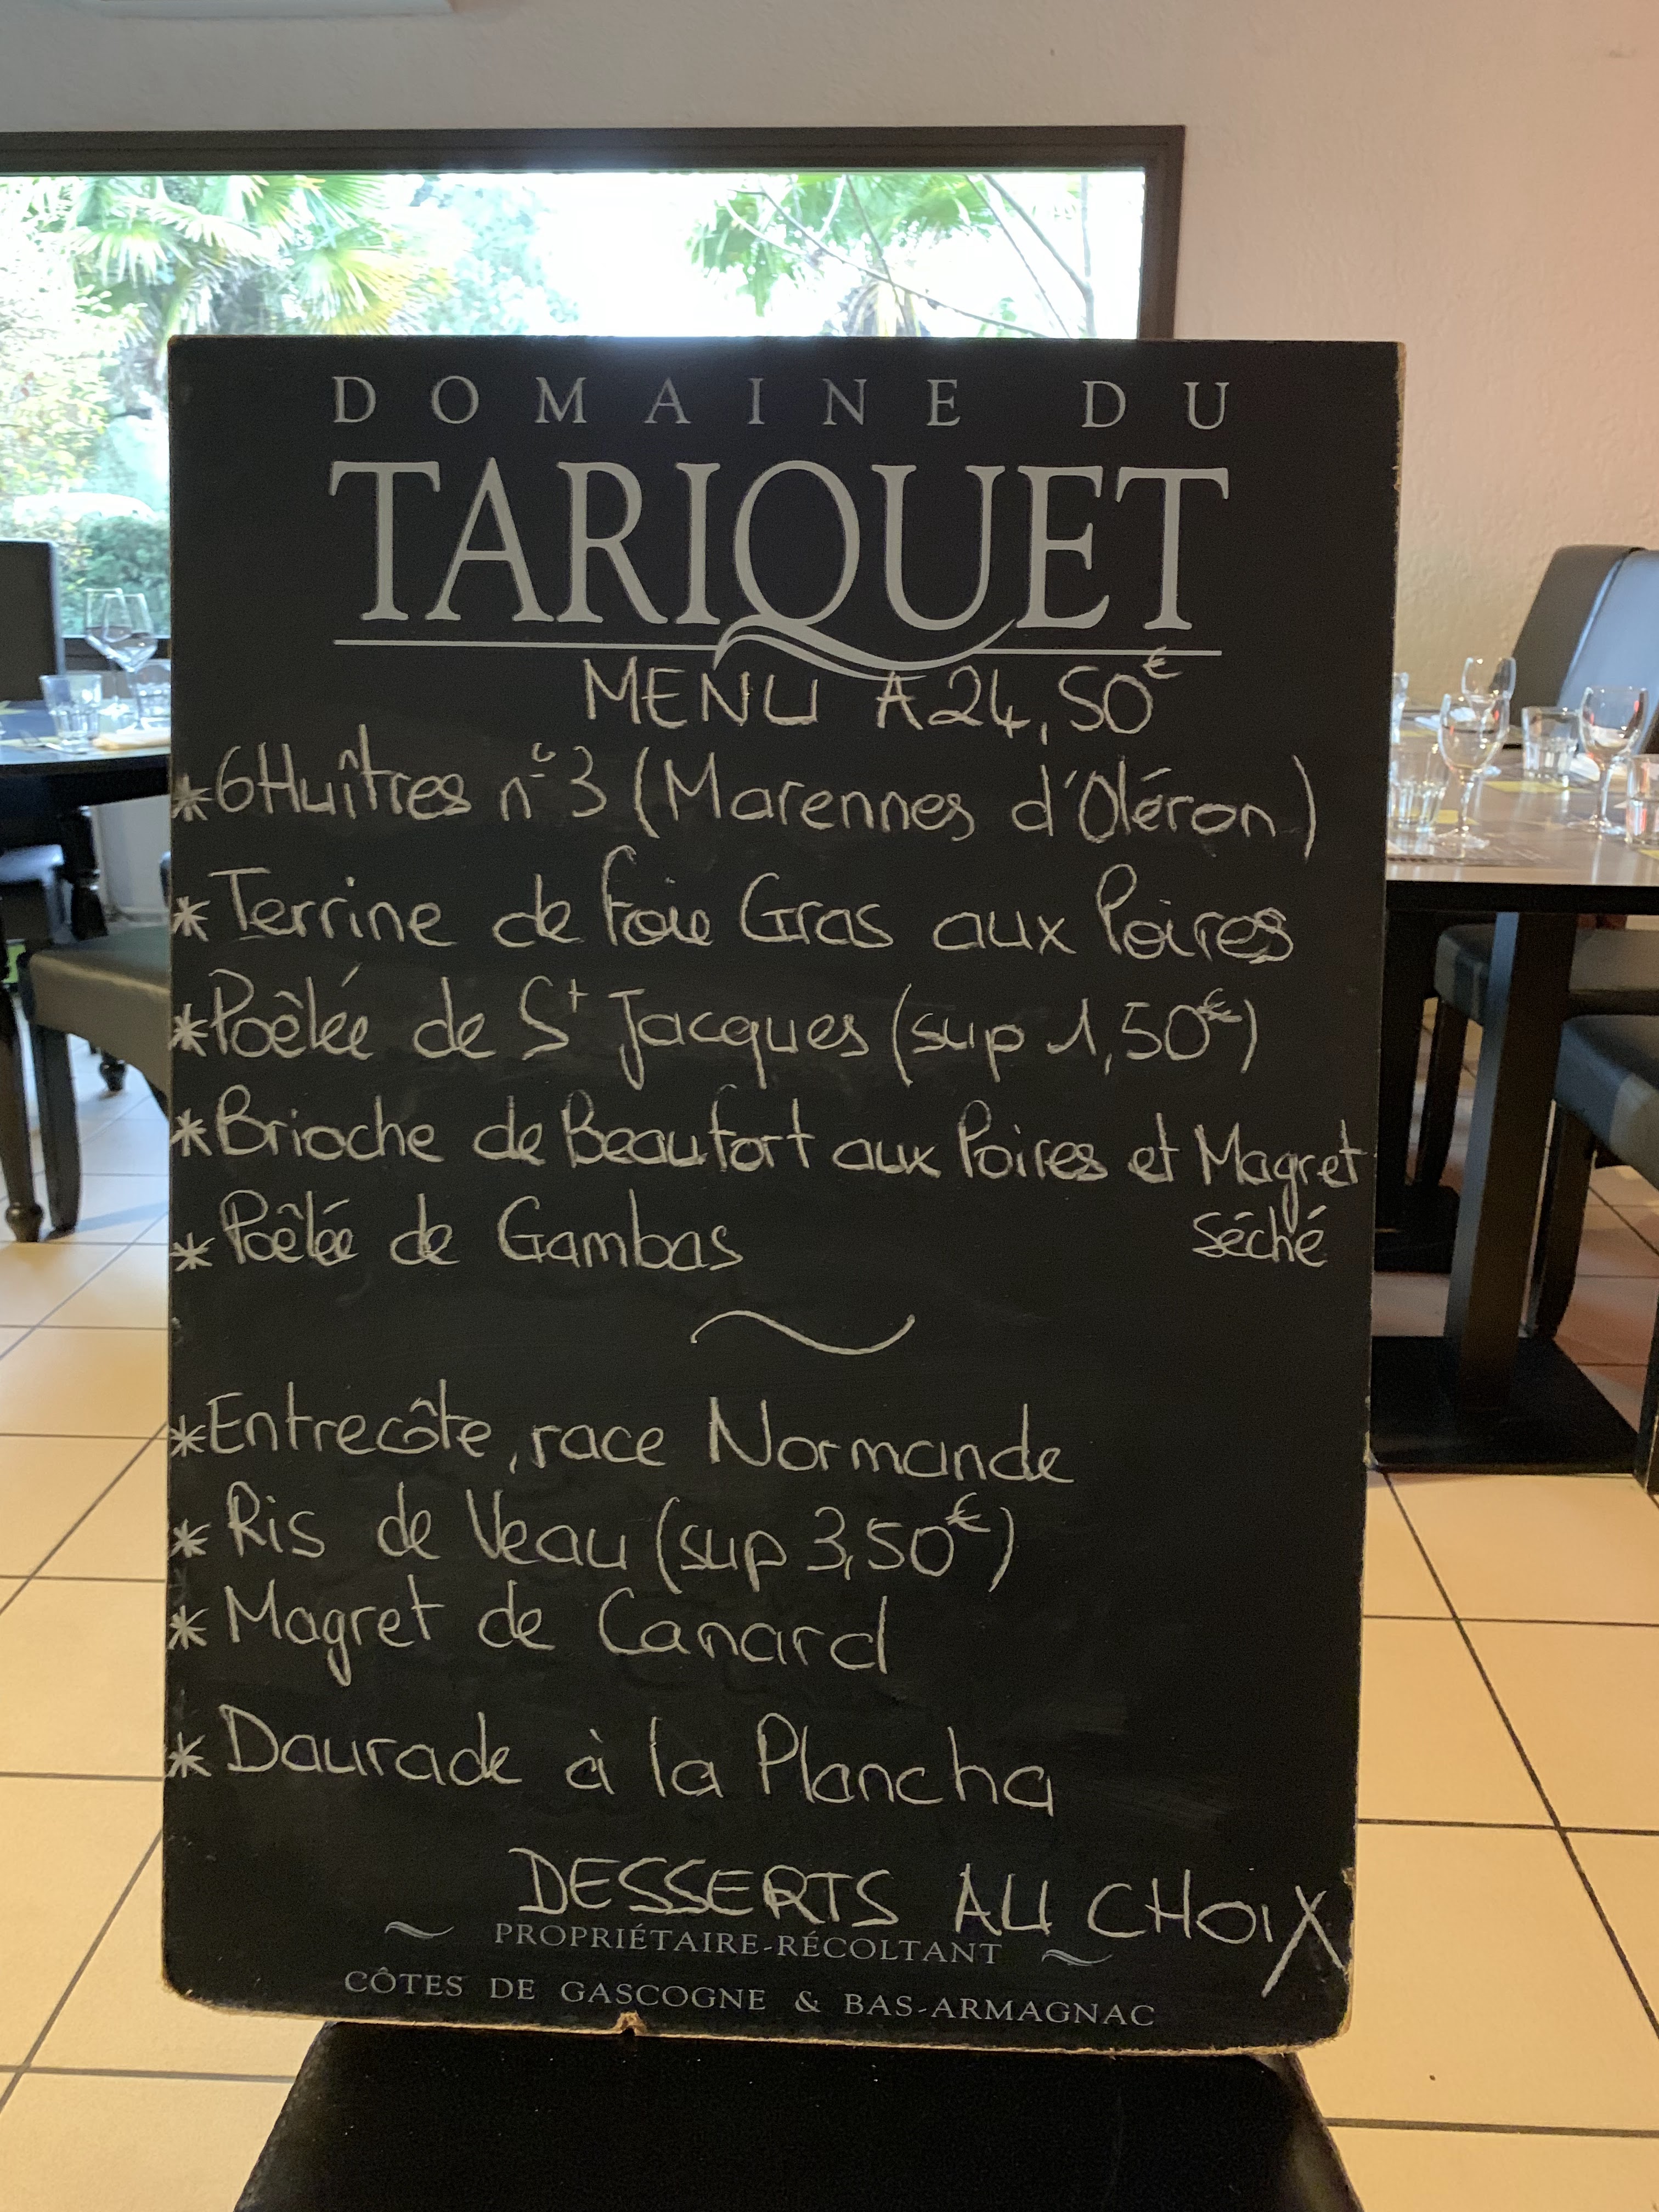 DOMAINE DU
TARIQUET
MENU A 24,50€
*6 Huîtres n°3 (Marennes d'Oléron)
*Terrine de foie Gras aux Poires
*Poêlée de St Jacques (sup 1,50€)
*Brioche de Beaufort aux Poires et Magret
Séché
*Poêlée de Gambas
*Entrecôte, race Normande
*Ris de Veau (sup 3,50€)
*Magret de Canard
*Daurade à la Plancha
DESSERTS AU CHOIX
PROPRIÉTAIRE-RÉCOLTANT
CÔTES DE GASCOGNE & BAS-ARMAGNAC